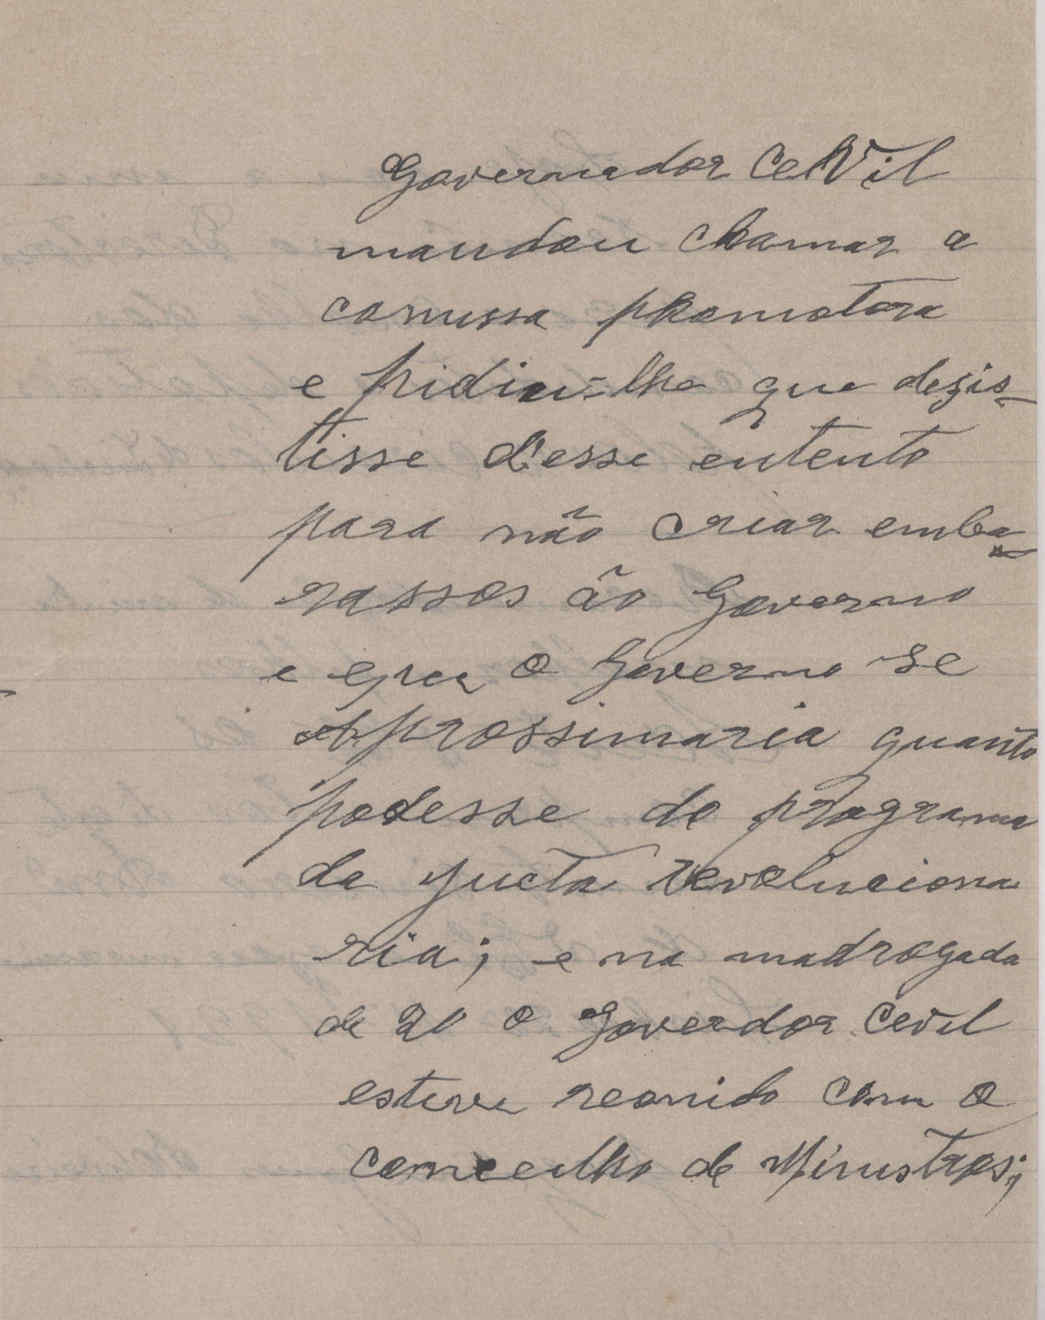 Governador Cevil
mandou chamar a
comissa promotora
e pidiu-lhe que dezis-
tisse d'esse entento
para não criar emba-
rassos ão Governo
e que o Governo se
aprossimaria quanto
podesse do programa
da Juctа revoluciona
ria; e na madrogada
de 20 o Goverdor Cevil
esteve reonido com o
conceilho de Ministros;